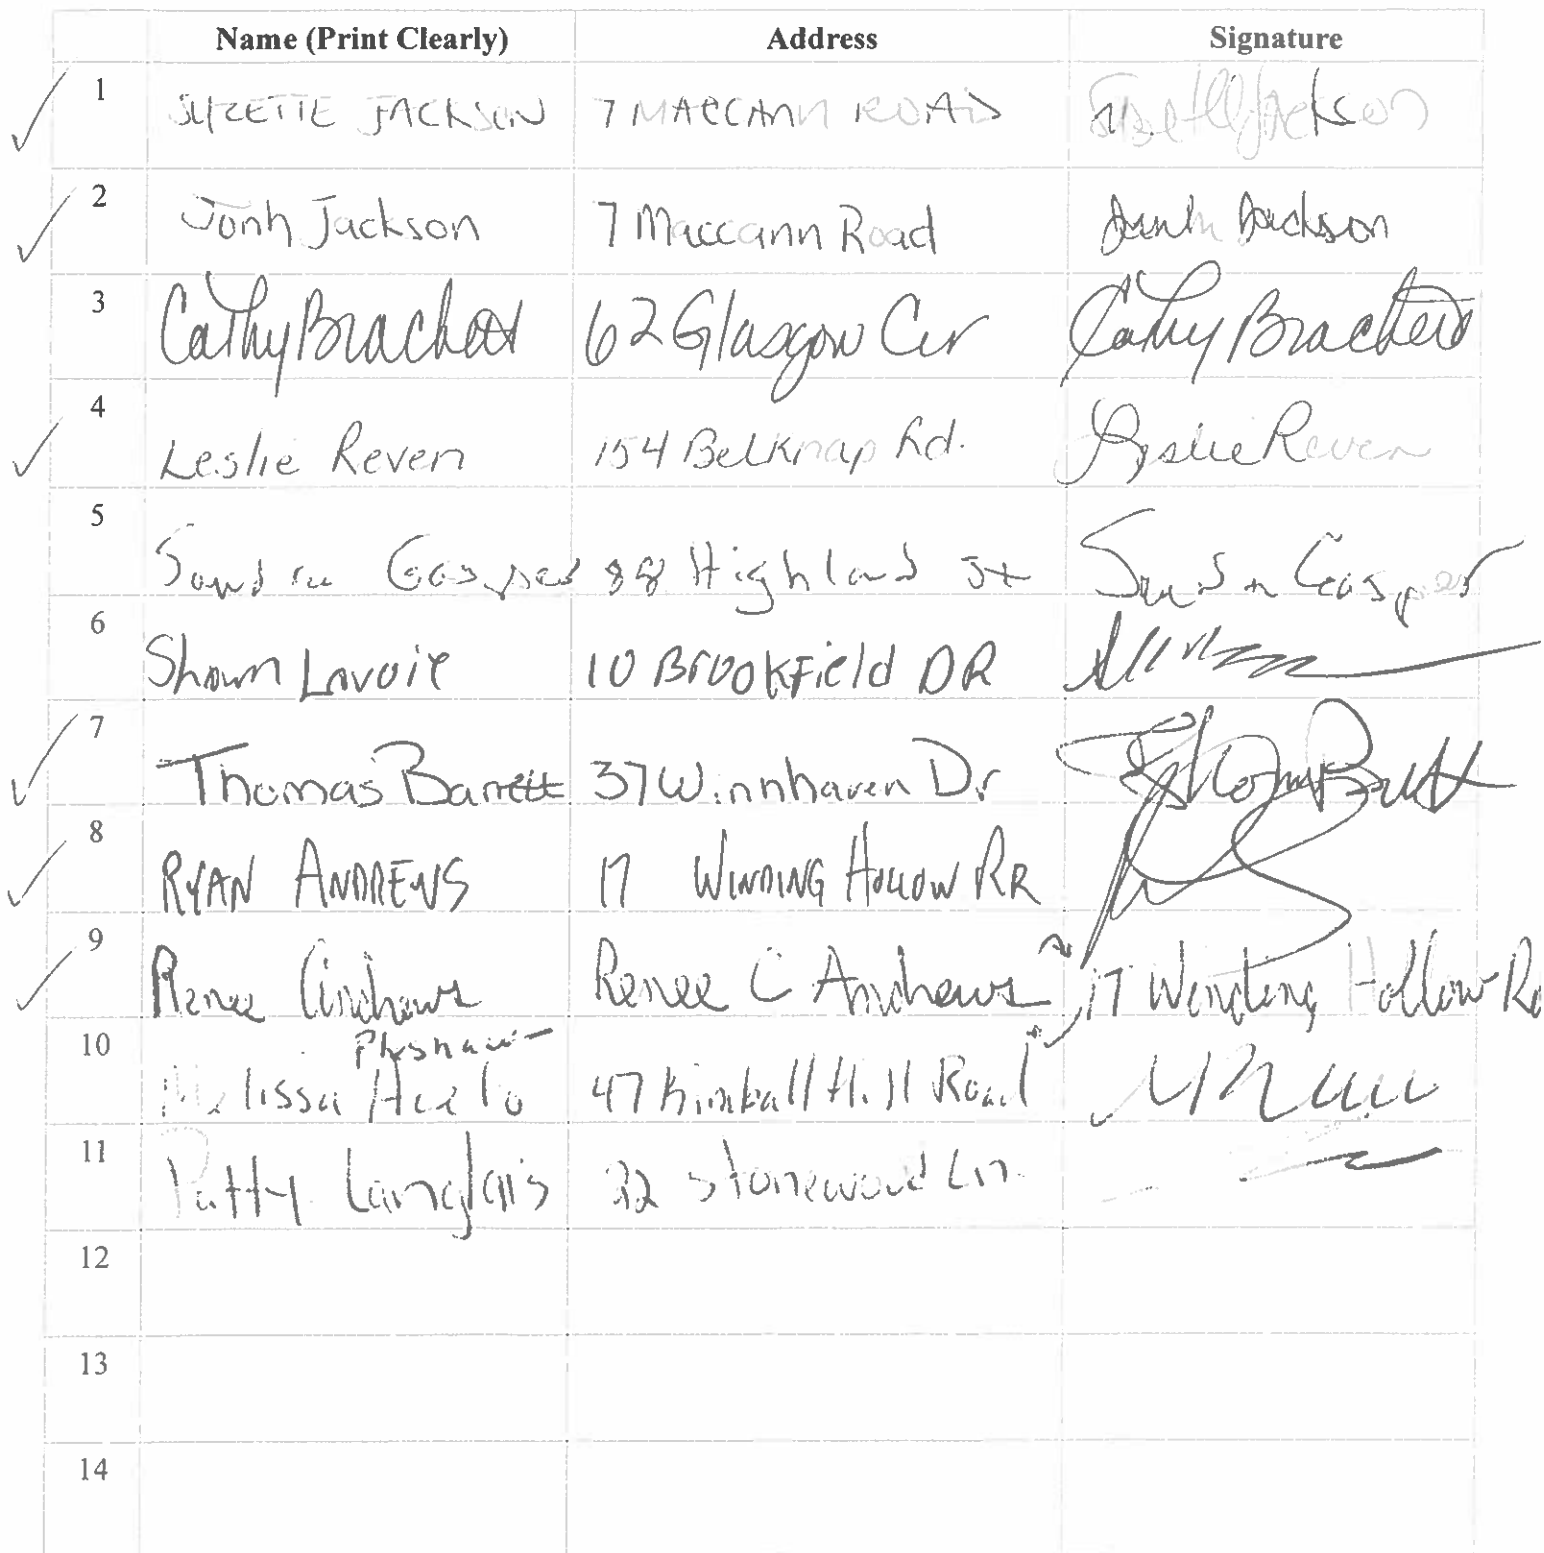 Name (Print Clearly) Address Signature
1 SUZETTE JACKSON 7 MACCANN ROAD Suzette Jackson
2 Jonh Jackson 7 Maccann Road Jonh Jackson
3 Cathy Brackett 62 Glasgow Cir Cathy Brackett
4 Leslie Reven 154 Belknap Rd. Leslie Reven
5 Sandra Gasper 88 Highland St Sandra Gasper
6 Shawn Lavoie 10 Brookfield DR
7 Thomas Barrett 37 Winnhaven Dr
8 RYAN ANDREWS 17 WINDING HOLLOW RR
9 Renee Andrews Renee C Andrews 17 Winding Hollow Rd
10 Melissa 47 Kimball Hill Road
11 Patty Langlais 32 Stonewood Ln
12
13
14